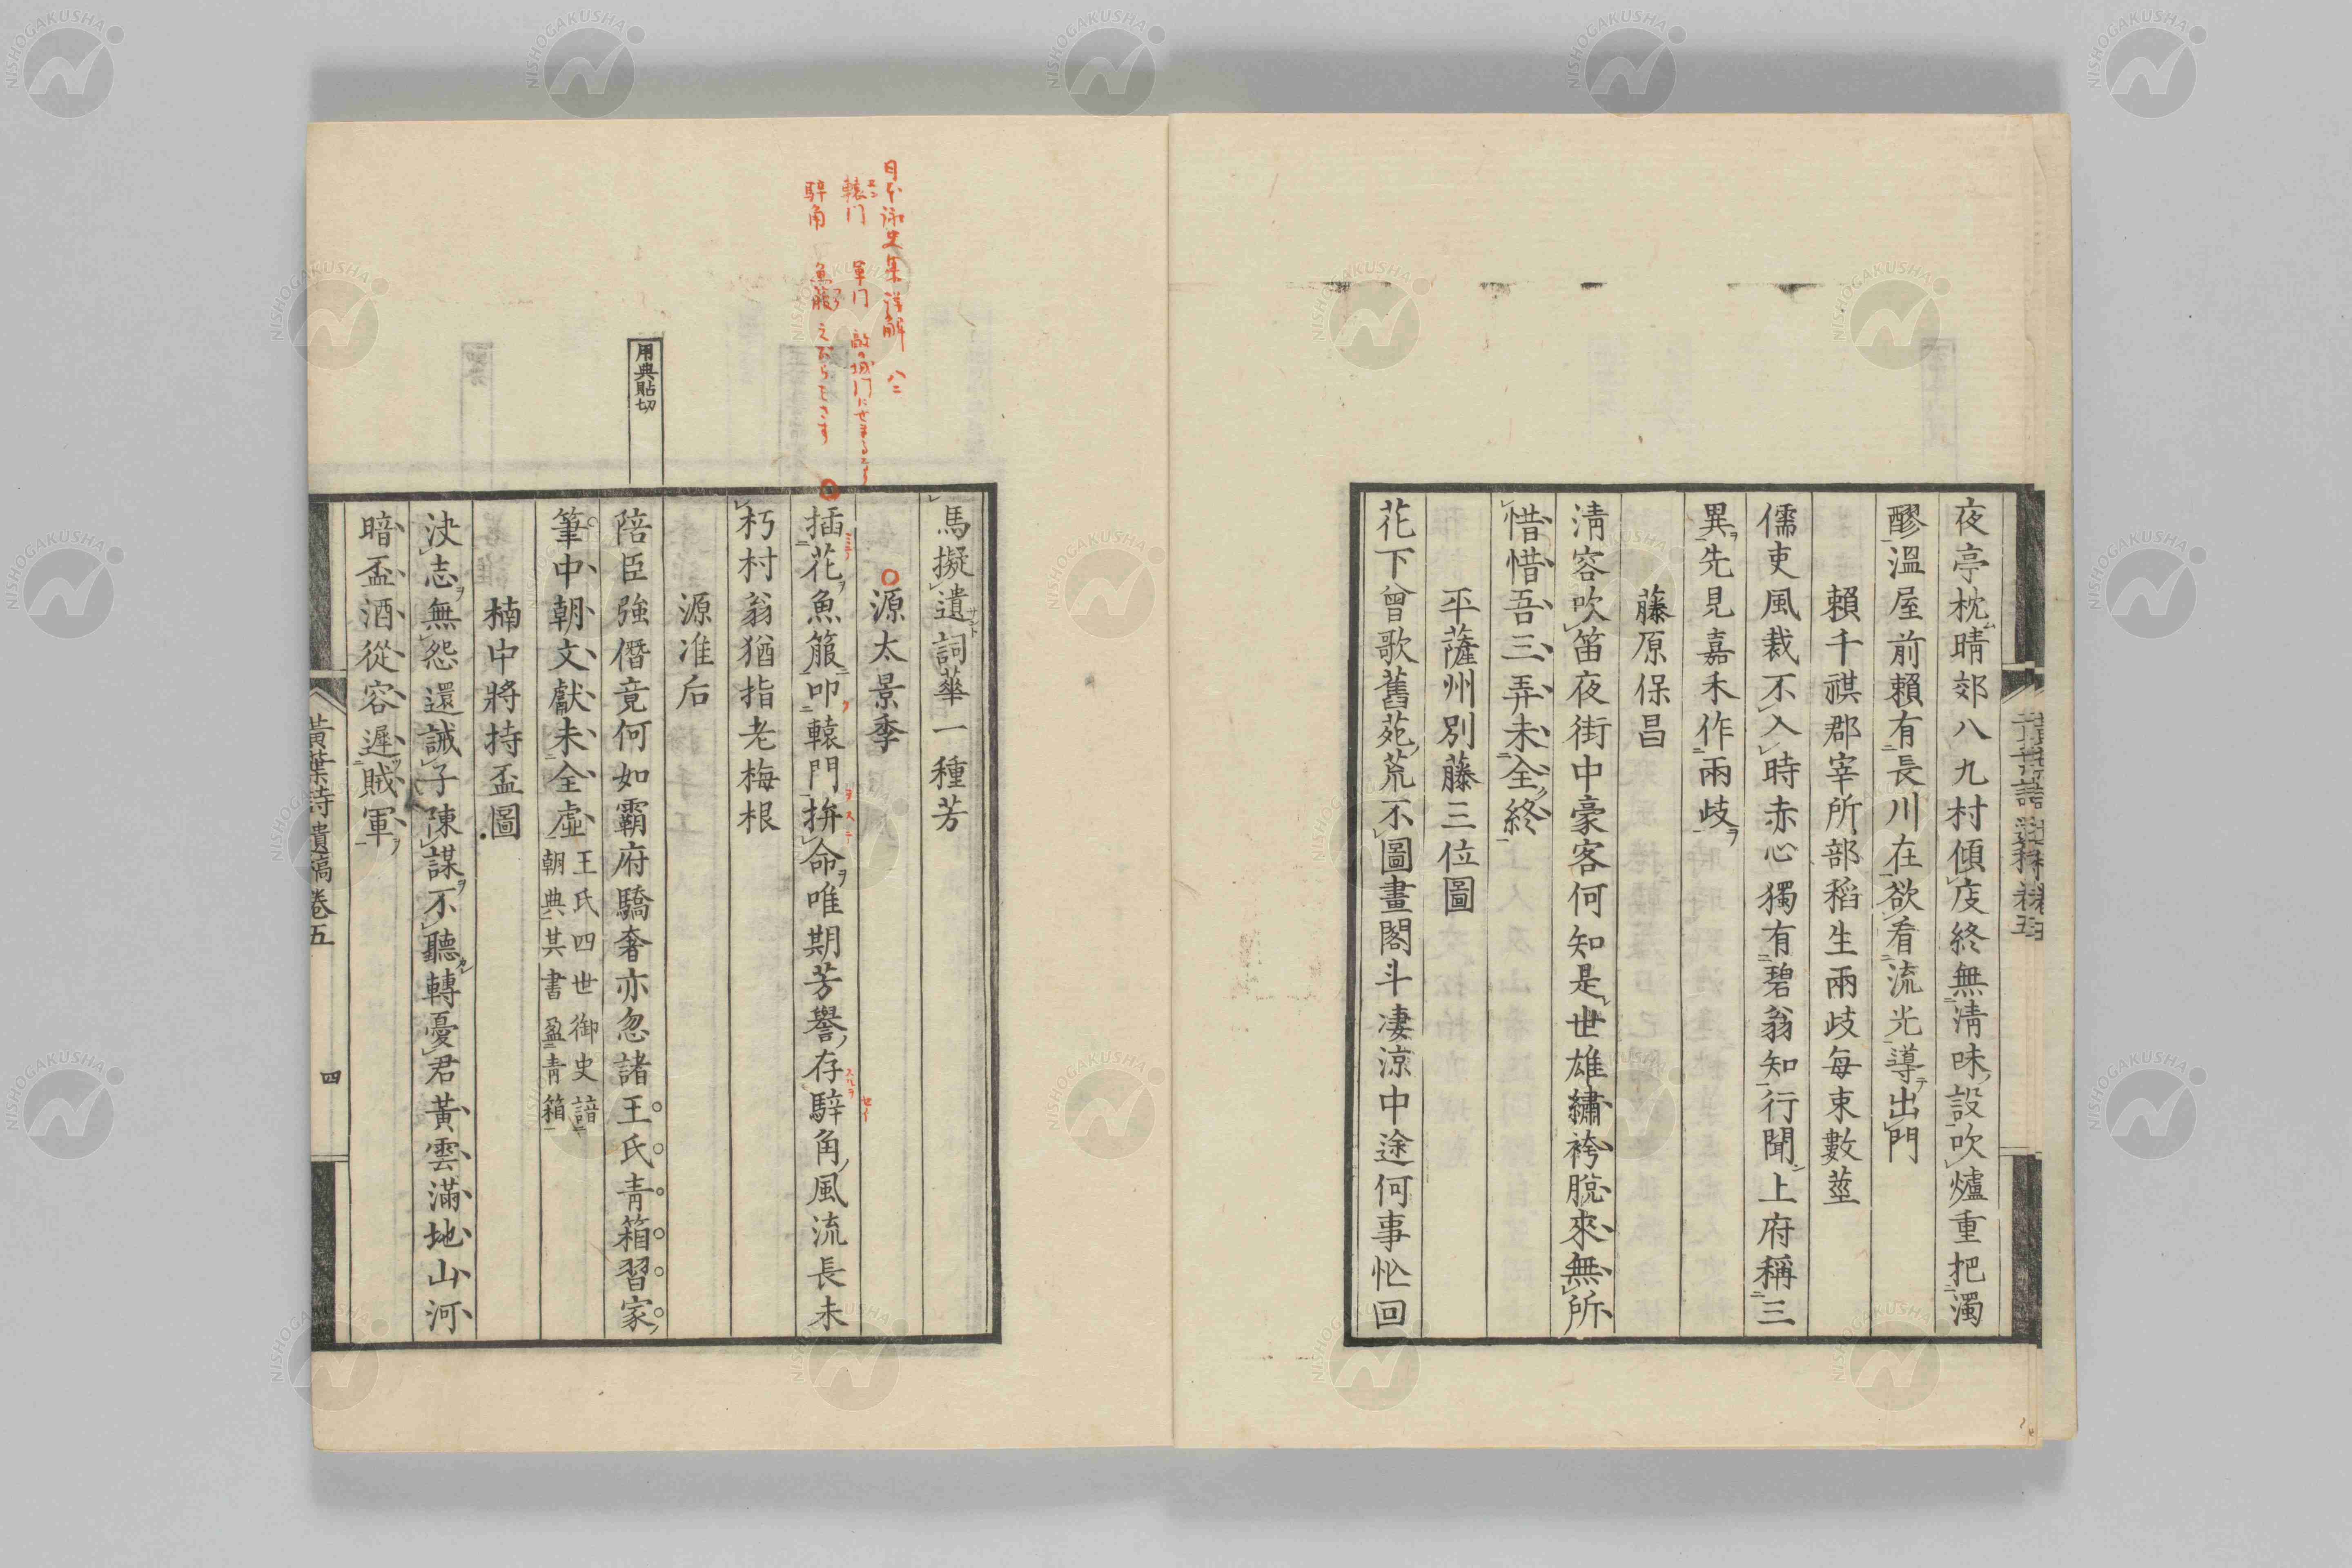 夜亭枕晴郊八九村傾庋終無淸味設吹爐重把濁
醪溫屋前賴有長川在欲看流光導出門
賴千祺郡宰所部稻生兩歧每束數莖
儒吏風裁不入時赤心獨有碧翁知行聞上府稱三
異先見嘉禾作兩歧
藤原保昌
淸容吹笛夜街中豪客何知是世雄繡袴脫來無所
惜惜吾三弄未全終
平薩州別藤三位圖
花下曾歌舊苑荒不圖畫閣斗凄涼中途何事忙回
馬擬遺詞華一種芳
源太景季
插花魚箙叩轅門拚命唯期芳譽存騂角風流長未
朽村翁猶指老梅根
源准后
陪臣強僭竟何如霸府驕奢亦忽諸王氏靑箱習家
筆中朝文獻未全虛王氏四世御史諳
朝典其書盈靑箱
楠中將持盃圖
決志無怨還誡子陳謀不聽轉憂君黃雲滿地山河
暗盃酒從容遲賊軍
黃葉詩遺稿卷五
四
用典貼切
日本詠史集詳解 八二
轅門 エン 軍門 敵の城門にせまる
騂角 魚箙 えびら
NISHOGAKUSHA